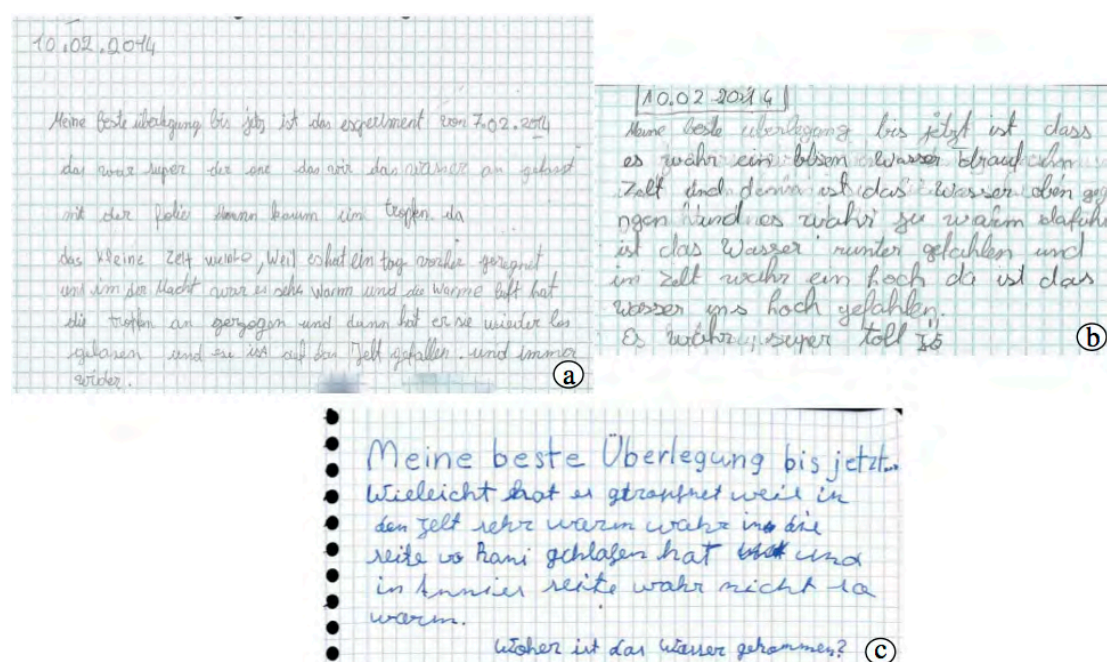 10.02.2014
Meine beste überlegung bis jetz ist das experiment von 7.02.2014
das war super der one das wir das wasser an gefasst
mit der folie kaum ein tropfen da
das kleine Zelt weil es hat ein tag vorher geregnet
und im der Nacht war es sehr warm und die warme luft hat
die tropfen an gezogen und dann hat er sie wieder los
gelasen und sie ist auf das Zelt gefallen. und immer
wider.
a
10.02.2014
Meine beste überlegung bis jetzt ist dass
es währ ein bisen wasser drauf
Zelt und dann ist das wasser oben geg
ngen und es wahr zu warm dafür
ist das Wasser runter gefahlen und
im Zelt wahr ein hoch da ist das
wasser ins hoch gefahlen.
Es wahr super toll
b
Meine beste Überlegung bis jetzt...
Wieleicht hat es getropfnet weil in
den Zelt sehr warm wahr in die
seite wo Rani geschlafen hat und
in Annies seite wahr nicht so
warm.
Woher ist das Wasser gekommen?
c